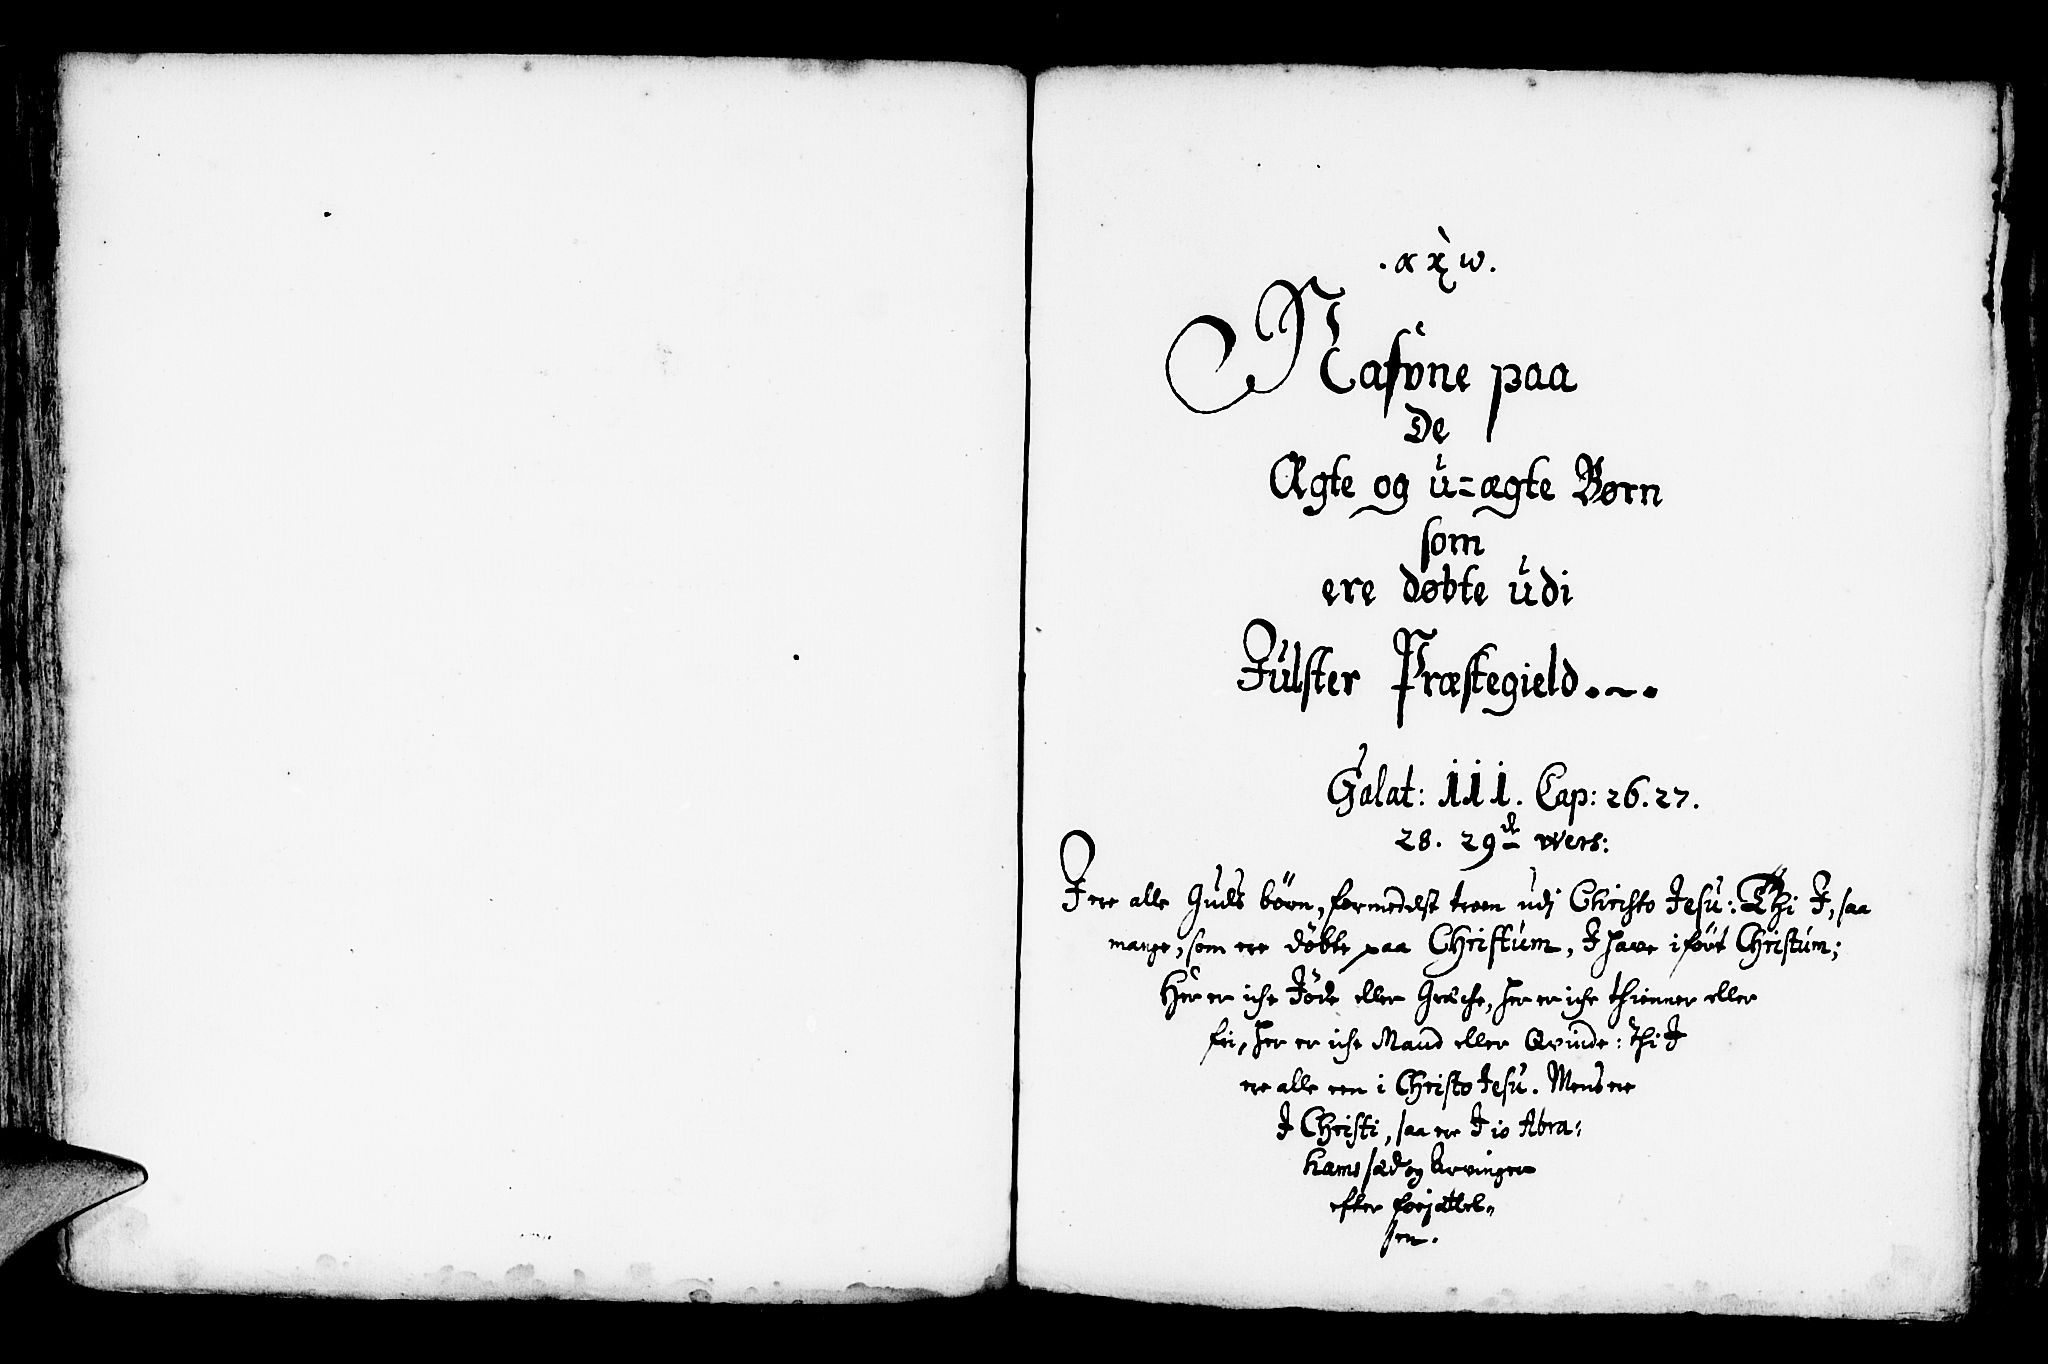 . α χ ω .
Nafvne paa
De
Ægte og u=ægte Børn
som
ere døbte udi
Julster Præstegield . ~ .
Galat: iii. Cap: 26. 27.
28. 29de wers:
J ere alle Guds börn, formedelst troen udj Christo Jesu: Thi J, saa
mange, som ere döbte paa Christum, J have iført Christum;
Her er iche Jöde eller Græche, her er iche thienner eller
fri, her er iche Mand eller Qvinde: thi J
ere alle een i Christo Jesu. Mens ere
J Christi, saa ere J io Abra=
hams sæd og Arvinger
efter forjættel=
sen.